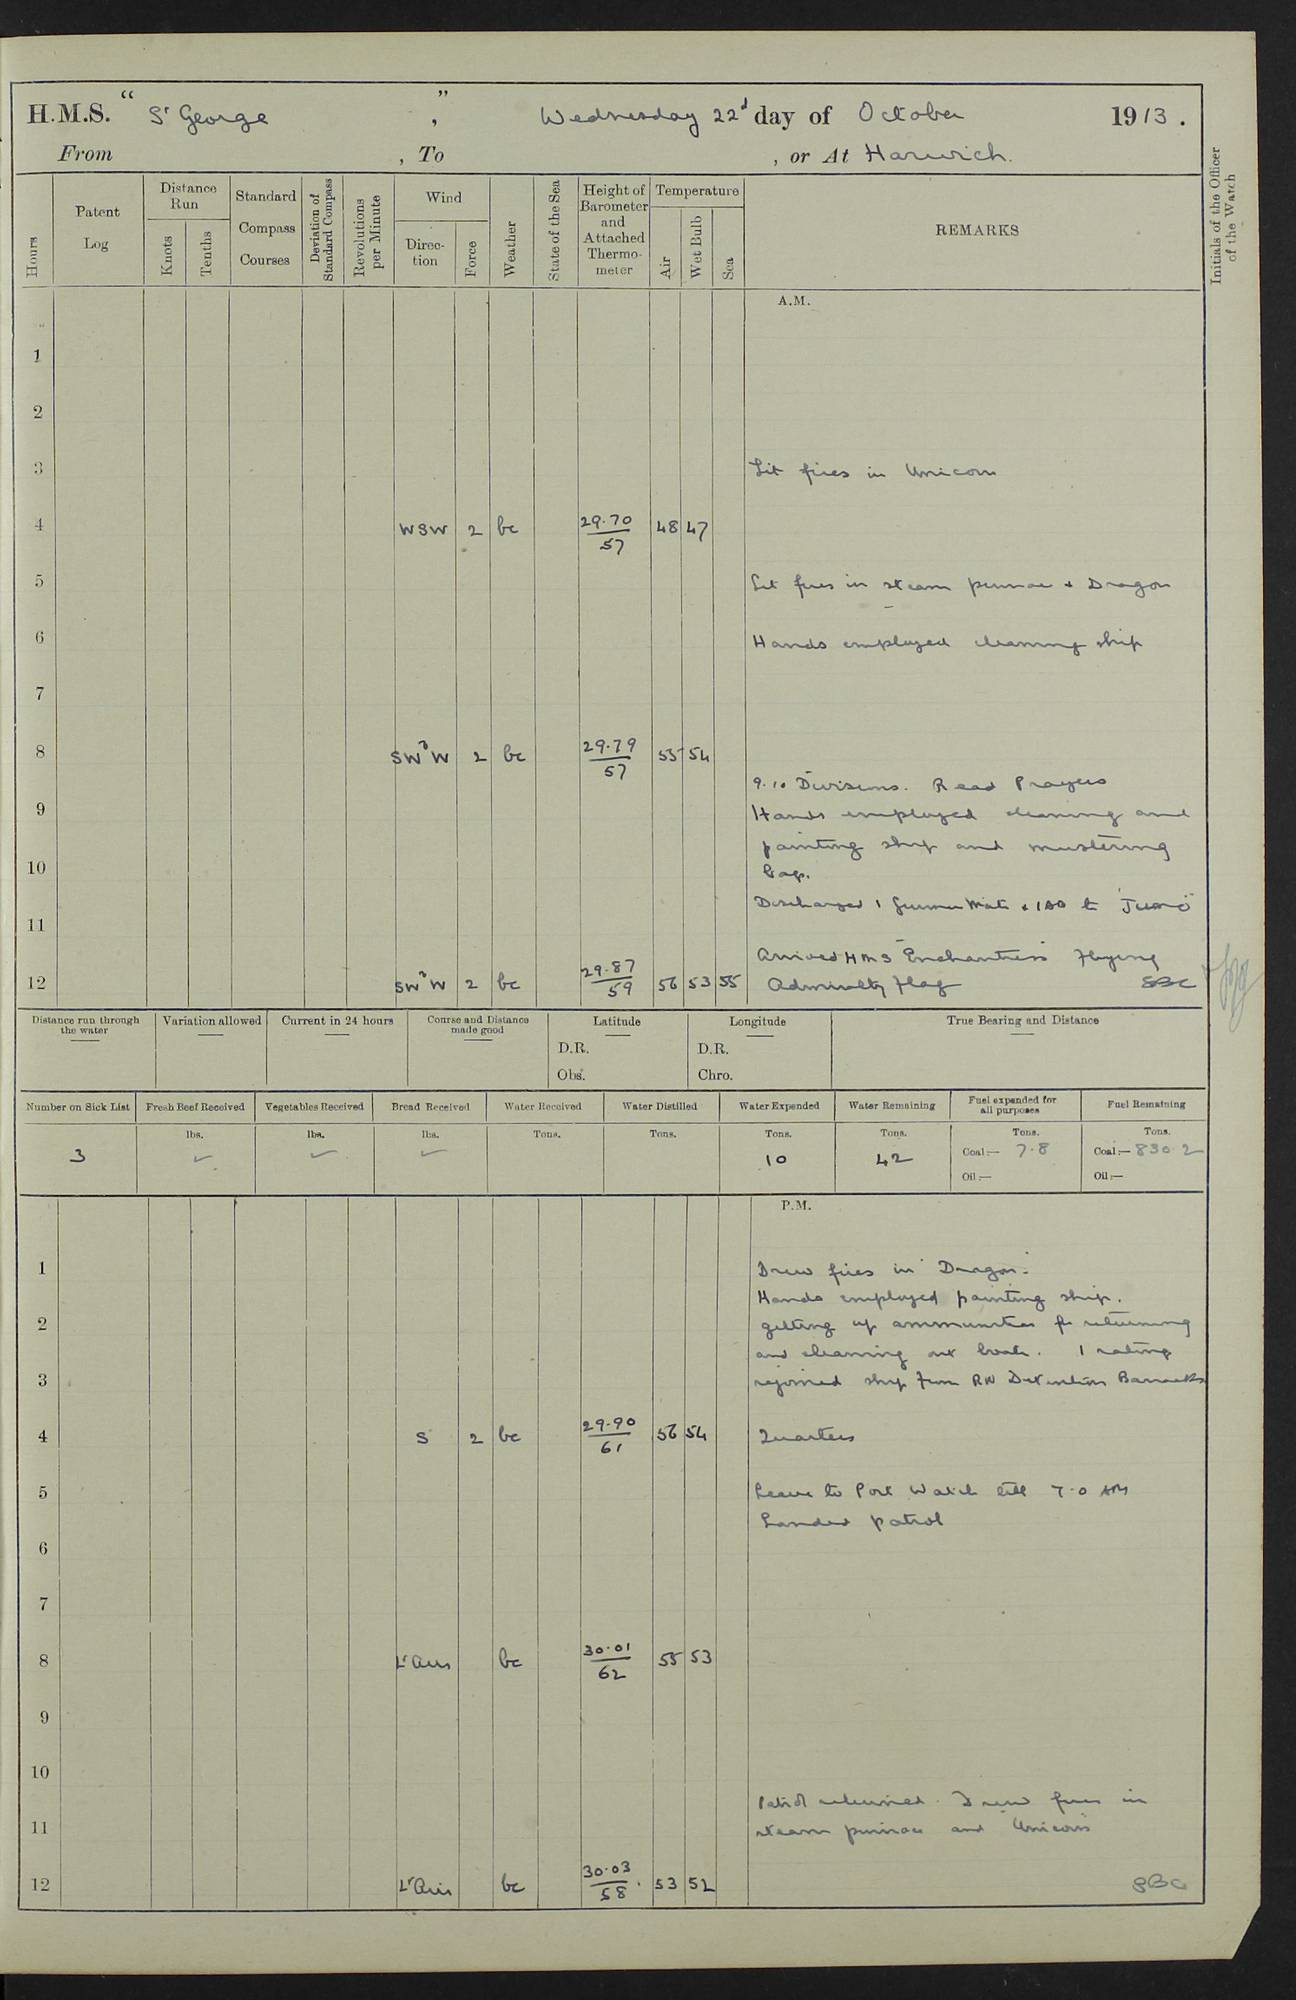 H.M.S. " St George " , Wednesday 22d day of October 1913 .
From , To , or At Harwich.
Hours
Patent Log
Distance Run
Knots
Tenths
Standard Compass Courses
Deviation of Standard Compass
Revolutions per Minute
Wind
Direction
Force
Weather
State of the Sea
Height of Barometer and Attached Thermometer
Temperature
Air
Wet Bulb
Sea
REMARKS
Initials of the Officer of the Watch
A.M.
1
2
3 Lit fires in Unicorn
4 WSW 2 bc 29.70 / 57 48 47
5 Lit fires in steam pinnace + Dragon
6 Hands employed cleaning ship
7
8 SWbW 2 bc 29.79 / 57 55 54
9.10 Divisions. Read Prayers
9 Hands employed cleaning and
painting ship and mustering
10 bags.
Discharged 1 Gunners Mate + 1 AB to "Juno"
11
Arrived HMS "Enchantress" flying
12 SWbW 2 bc 29.87 / 59 56 53 55 Admiralty Flag SBC
Distance run through the water
Variation allowed
Current in 24 hours
Course and Distance made good
Latitude
D.R.
Obs.
Longitude
D.R.
Chro.
True Bearing and Distance
Number on Sick List Fresh Beef Received Vegetables Received Bread Received Water Received Water Distilled Water Expended Water Remaining Fuel expended for all purposes Fuel Remaining
lbs. lbs. lbs. Tons. Tons. Tons. Tons. Tons. Tons.
3 ✓ ✓ ✓ 10 42 Coal:— 7.8 Coal:— 830.2
Oil:— Oil:—
P.M.
1 Drew fires in "Dragon".
Hands employed painting ship.
2 getting up ammunition for returning
and cleaning out boats. 1 rating
3 rejoined ship from RN Detention Barracks
4 S 2 bc 29.90 / 61 56 54 Quarters
5 Leave to Port Watch till 7.0 AM
Landed patrol
6
7
8 Lt Airs bc 30.01 / 62 55 53
9
10
Patrol returned. Drew fires in
11 steam pinnace and "Unicorn"
12 Lt Airs bc 30.03 / 58 53 52 SBC